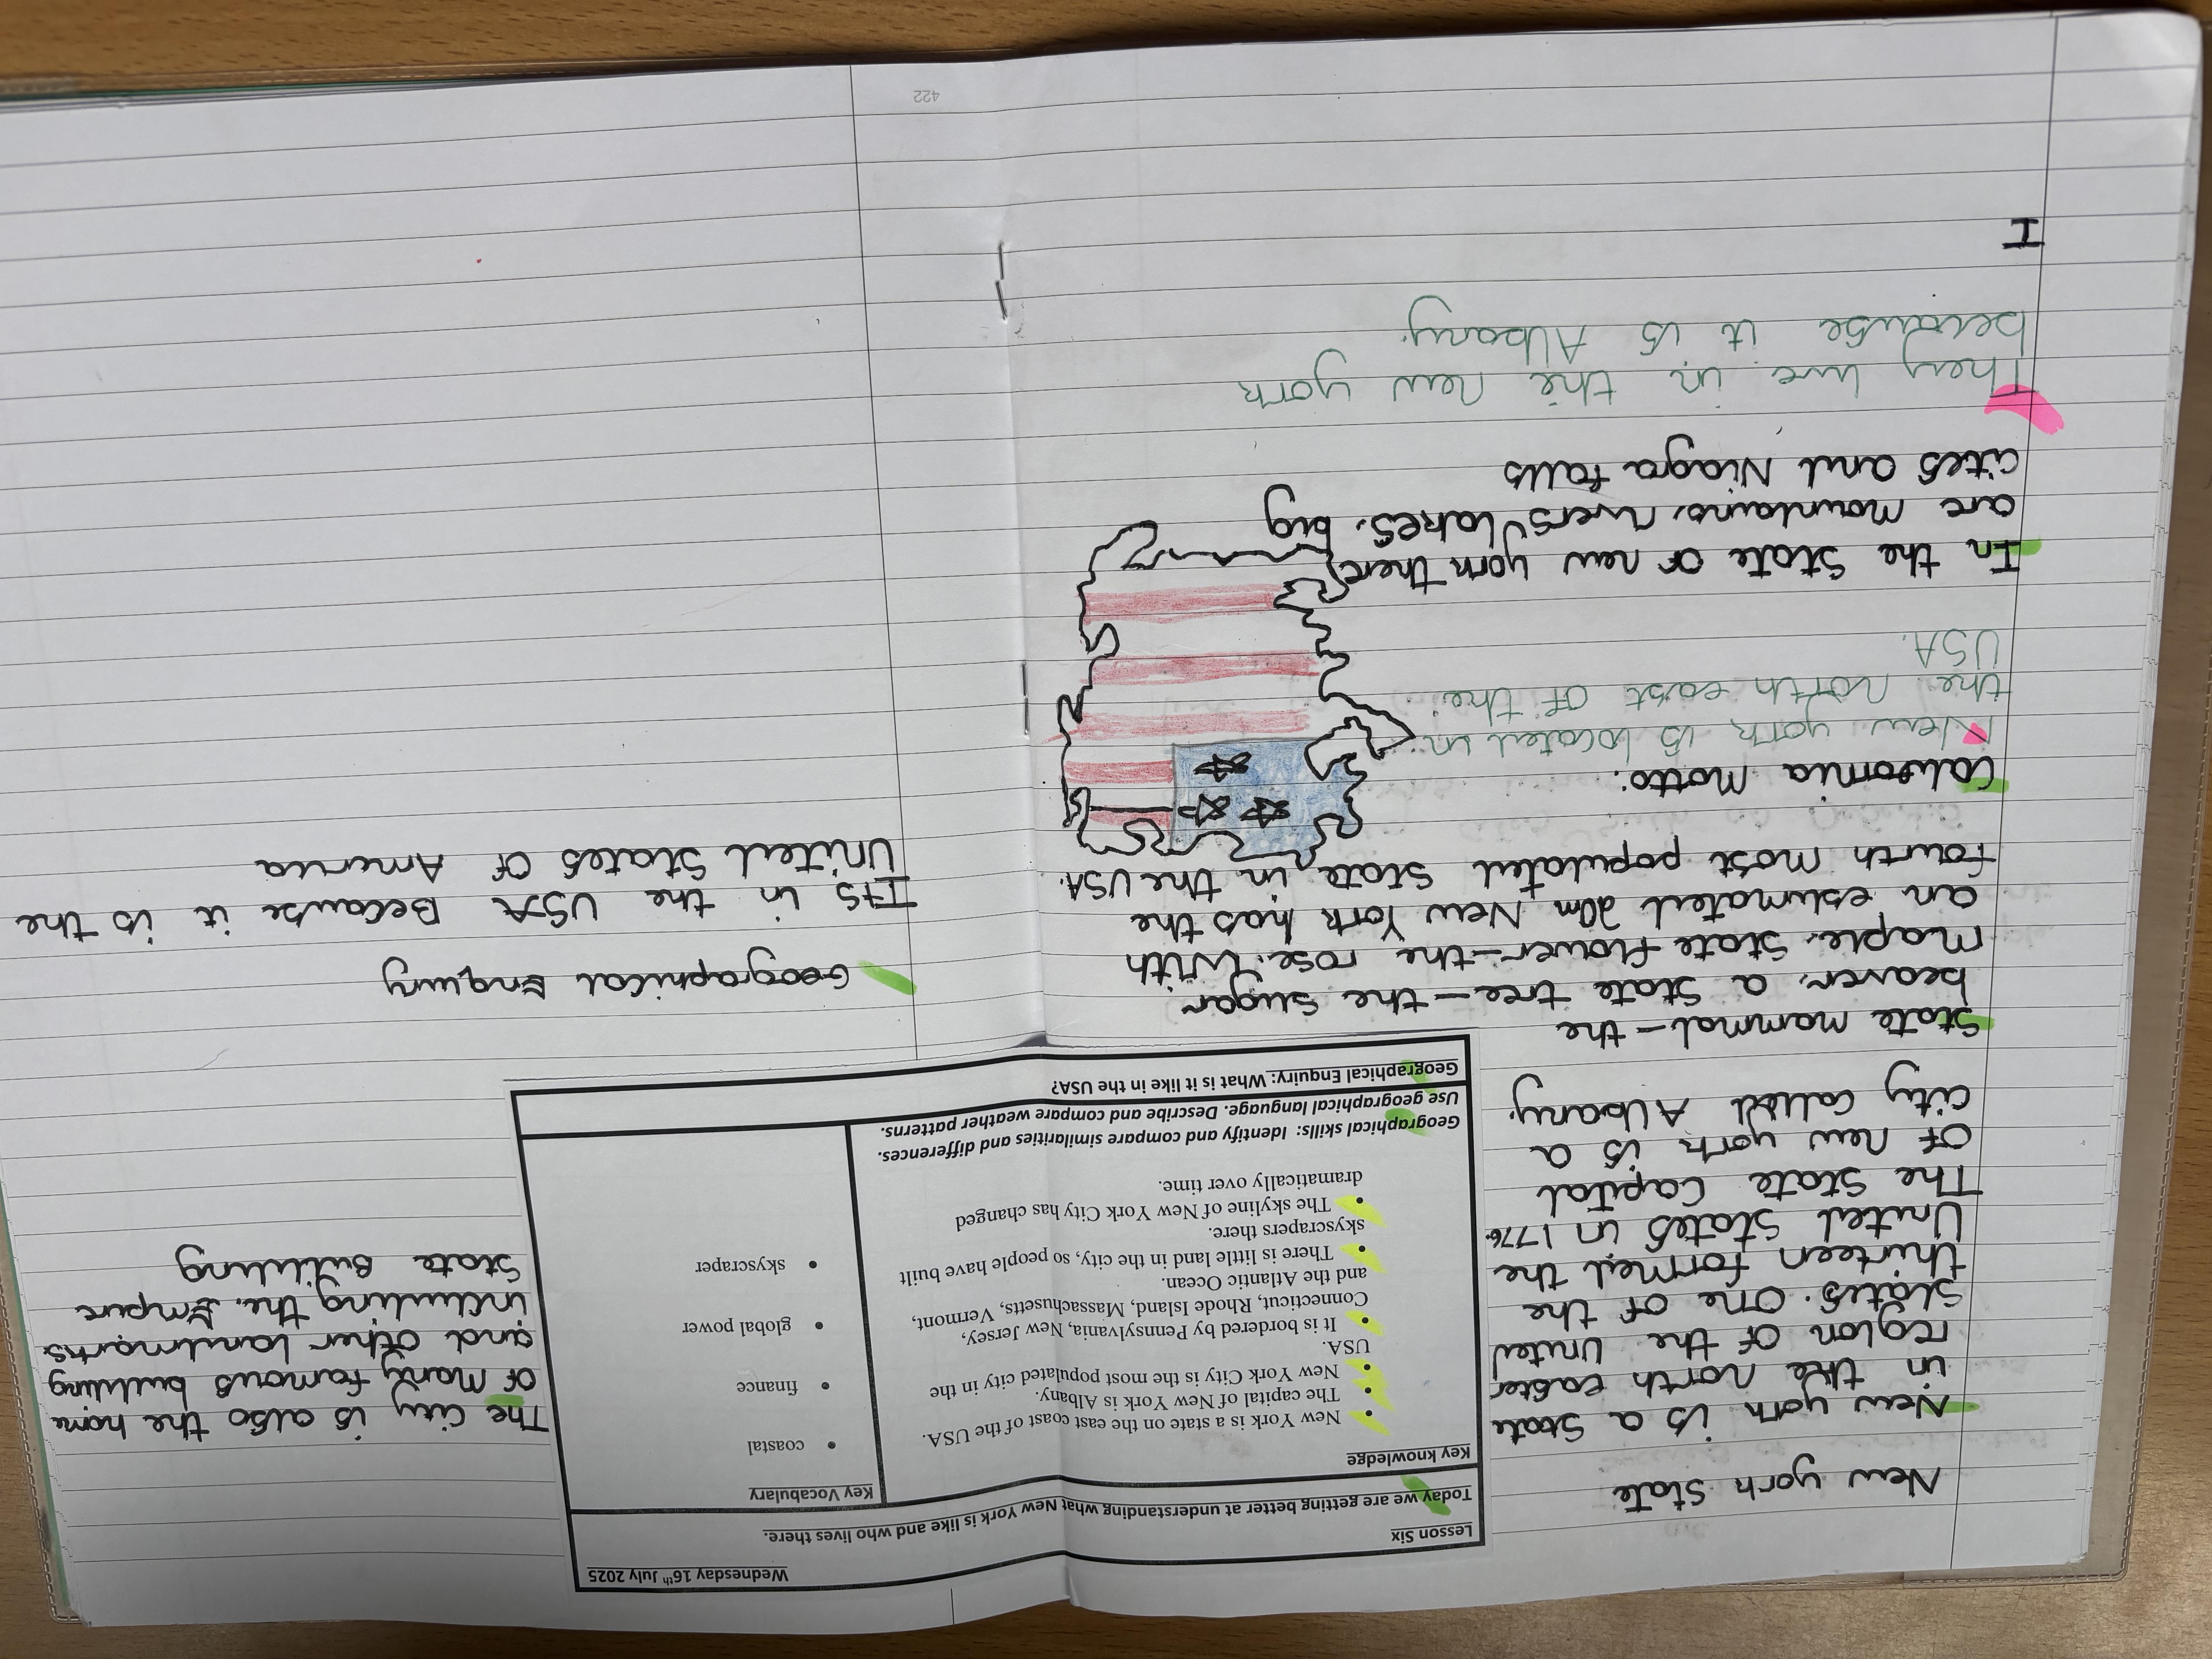 Wednesday 16th July 2025
Lesson Six
Today we are getting better at understanding what New York is like and who lives there.
Key knowledge
• New York is a state on the east coast of the USA.
• The capital of New York is Albany.
• New York City is the most populated city in the
USA.
• It is bordered by Pennsylvania, New Jersey,
Connecticut, Rhode Island, Massachusetts, Vermont,
and the Atlantic Ocean.
• There is little land in the city, so people have built
skyscrapers there.
• The skyline of New York City has changed
dramatically over time.
Key Vocabulary
• coastal
• finance
• global power
• skyscraper
Geographical skills: Identify and compare similarities and differences.
Use geographical language. Describe and compare weather patterns.
Geographical Enquiry: What is it like in the USA?
New york State
New york is a State
in the north easter
region of the United
States. one of the
thirteen formed the
United States in 1776.
The State Capital
of new york is a
City called Albany.
State mammal - the
beaver, a State tree - the sugar
maple, State flower - the rose. With
an estimated 20m New York has the
fourth most populated State in the USA.
California Motto:
New york is located in
the north east of the
USA.
In the State of new york there
are mountains, rivers lakes, big
cites and Niagra falls
They live in the new york
because it is Albany.
I
The City is also the home
of many famous building
and other landmarks
including the Empire
State Building
Geographical Enquiry
Its in the USA Because it is the
United States of America
422